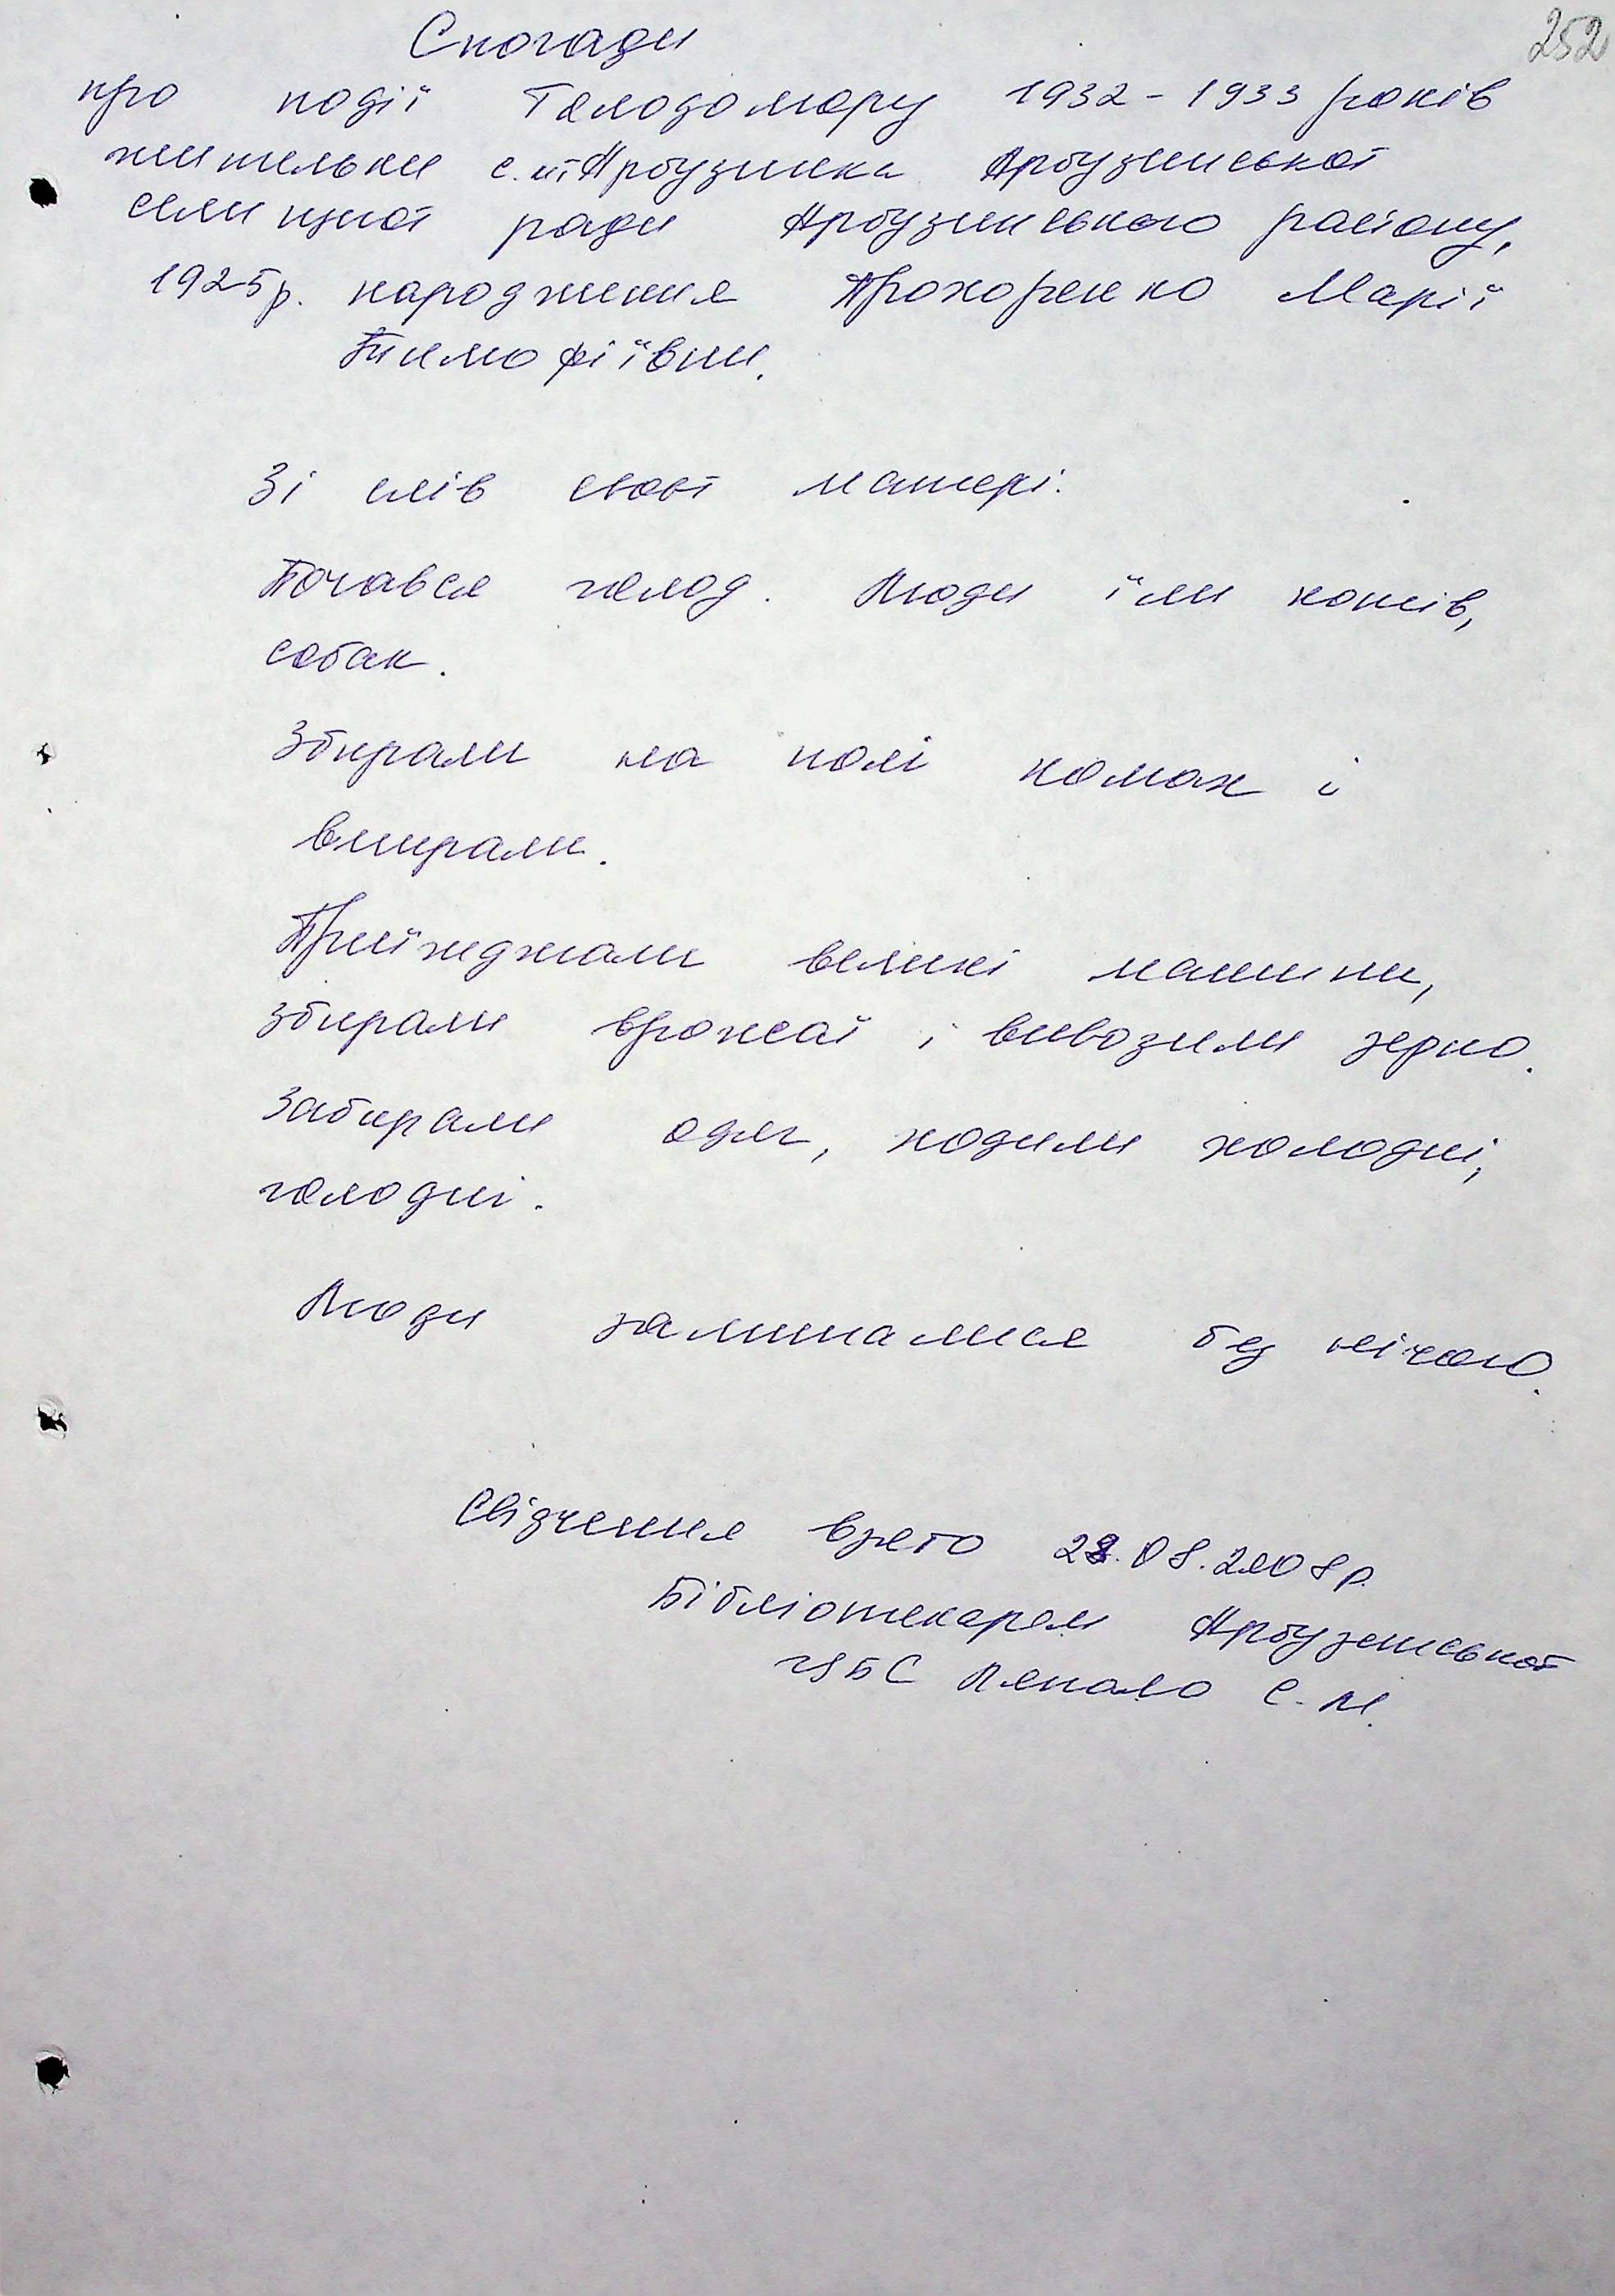 252
Спогади
про події Голодомору 1932-1933 років
жительки с.м.т Арбузинка Арбузинської
селищної ради Арбузинського району,
1925р. народження Прохоренко Марії
Тимофіївни.
Зі слів своєї матері.
Почався голод. Люди їли котів,
собак.
Збирали на полі комах і
вмирали.
Приїжджали великі машини,
збирали врожай і вивозили зерно.
Забирали одяг, ходили холодні,
голодні.
Люди залишалися без нічого.
Свідчення взято 28.08.2008р.
Бібліотекарем Арбузинської
ЦБС Ляпало С. М.